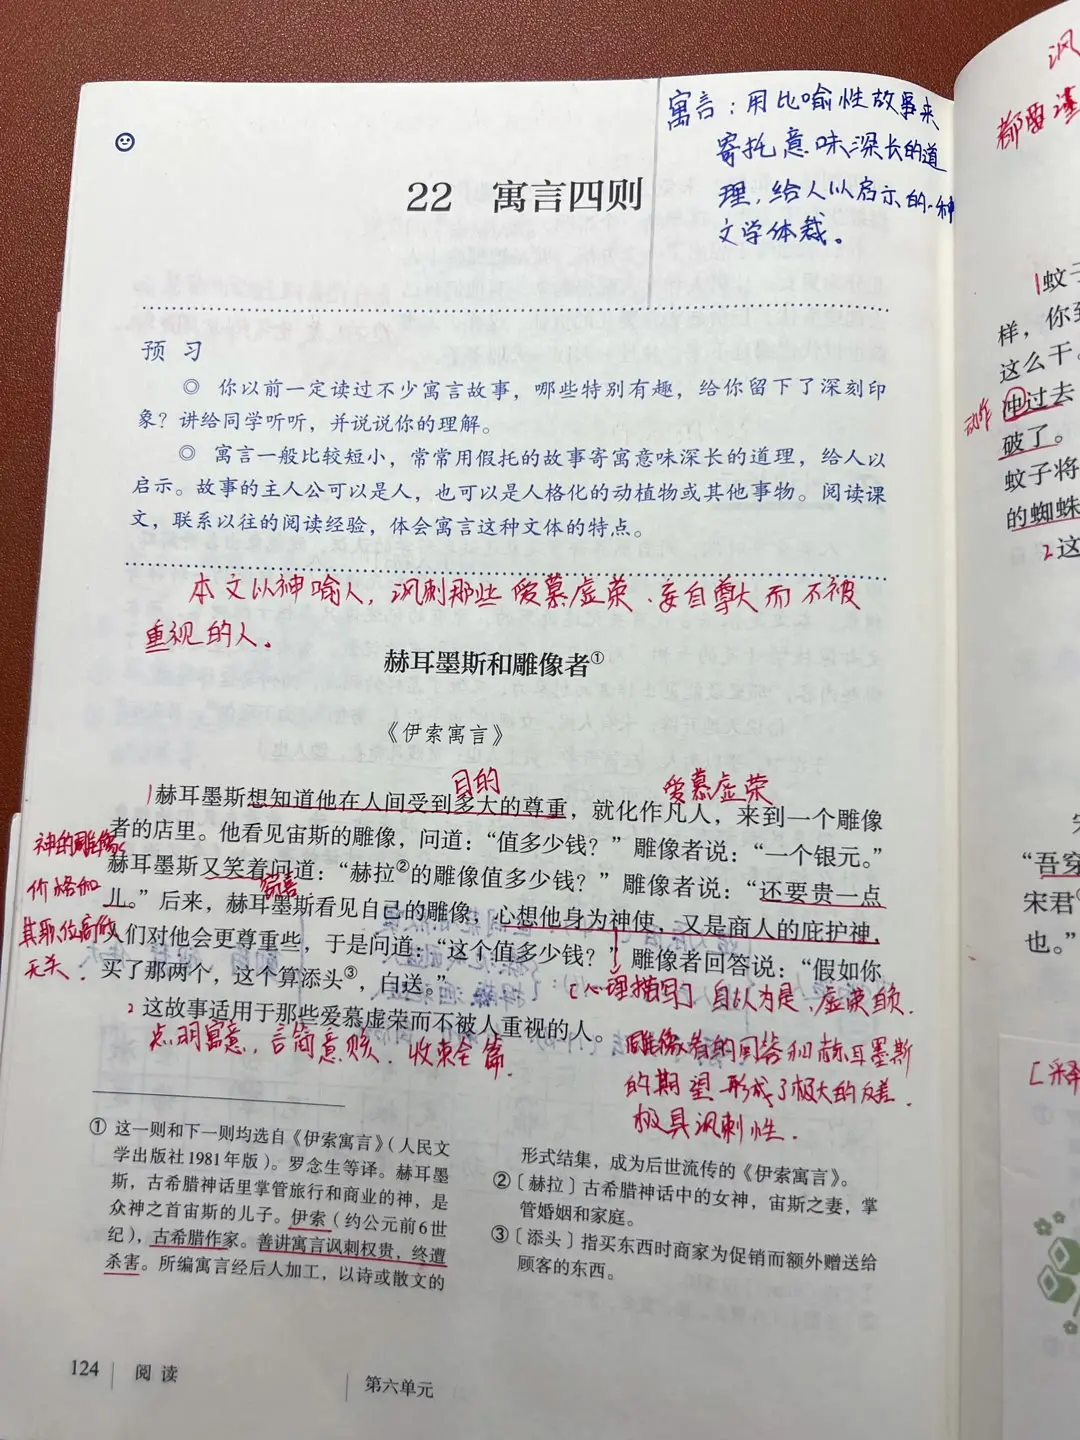 寓言：用比喻性故事来
寄托意味深长的道
理，给人以启示的一种
文学体裁。
22 寓言四则
预 习
◎ 你以前一定读过不少寓言故事，哪些特别有趣，给你留下了深刻印
象？讲给同学听听，并说说你的理解。
◎ 寓言一般比较短小，常常用假托的故事寄寓意味深长的道理，给人以
启示。故事的主人公可以是人，也可以是人格化的动植物或其他事物。阅读课
文，联系以往的阅读经验，体会寓言这种文体的特点。
本文以神喻人，讽刺那些爱慕虚荣、妄自尊大而不被
重视的人。
赫耳墨斯和雕像者①
《伊索寓言》
目的
爱慕虚荣
1赫耳墨斯想知道他在人间受到多大的尊重，就化作凡人，来到一个雕像
者的店里。他看见宙斯的雕像，问道：“值多少钱？”雕像者说：“一个银元。”
赫耳墨斯又笑着问道：“赫拉②的雕像值多少钱？”雕像者说：“还要贵一点
儿。”后来，赫耳墨斯看见自己的雕像，心想他身为神使，又是商人的庇护神，
人们对他会更尊重些，于是问道：“这个值多少钱？”雕像者回答说：“假如你
买了那两个，这个算添头③，白送。”
2这故事适用于那些爱慕虚荣而不被人重视的人。
神的雕像
价格和
其职位高低
无关.
[心理描写] 自认为是、虚荣自负.
点明寓意，言简意赅、收束全篇.
雕像者的回答和赫耳墨斯
的期望形成了极大的反差.
极具讽刺性.
① 这一则和下一则均选自《伊索寓言》（人民文
学出版社1981年版）。罗念生等译。赫耳墨
斯，古希腊神话里掌管旅行和商业的神，是
众神之首宙斯的儿子。伊索（约公元前6世
纪），古希腊作家。善讲寓言讽刺权贵，终遭
杀害。所编寓言经后人加工，以诗或散文的
形式结集，成为后世流传的《伊索寓言》。
②〔赫拉〕古希腊神话中的女神，宙斯之妻，掌
管婚姻和家庭。
③〔添头〕指买东西时商家为促销而额外赠送给
顾客的东西。
124 阅 读
第六单元
讽
都要谨
1蚊子
样，你
这么干。
动作
冲过去
破了。
蚊子将
的蜘蛛
2这
“吾穿
宋君
也。”
[释